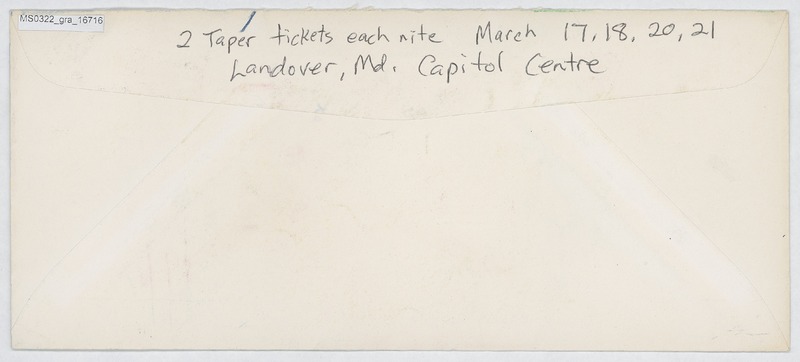 MS0322_gra_16716
2 Taper tickets each nite March 17, 18, 20, 21
Landover, Md. Capitol Centre